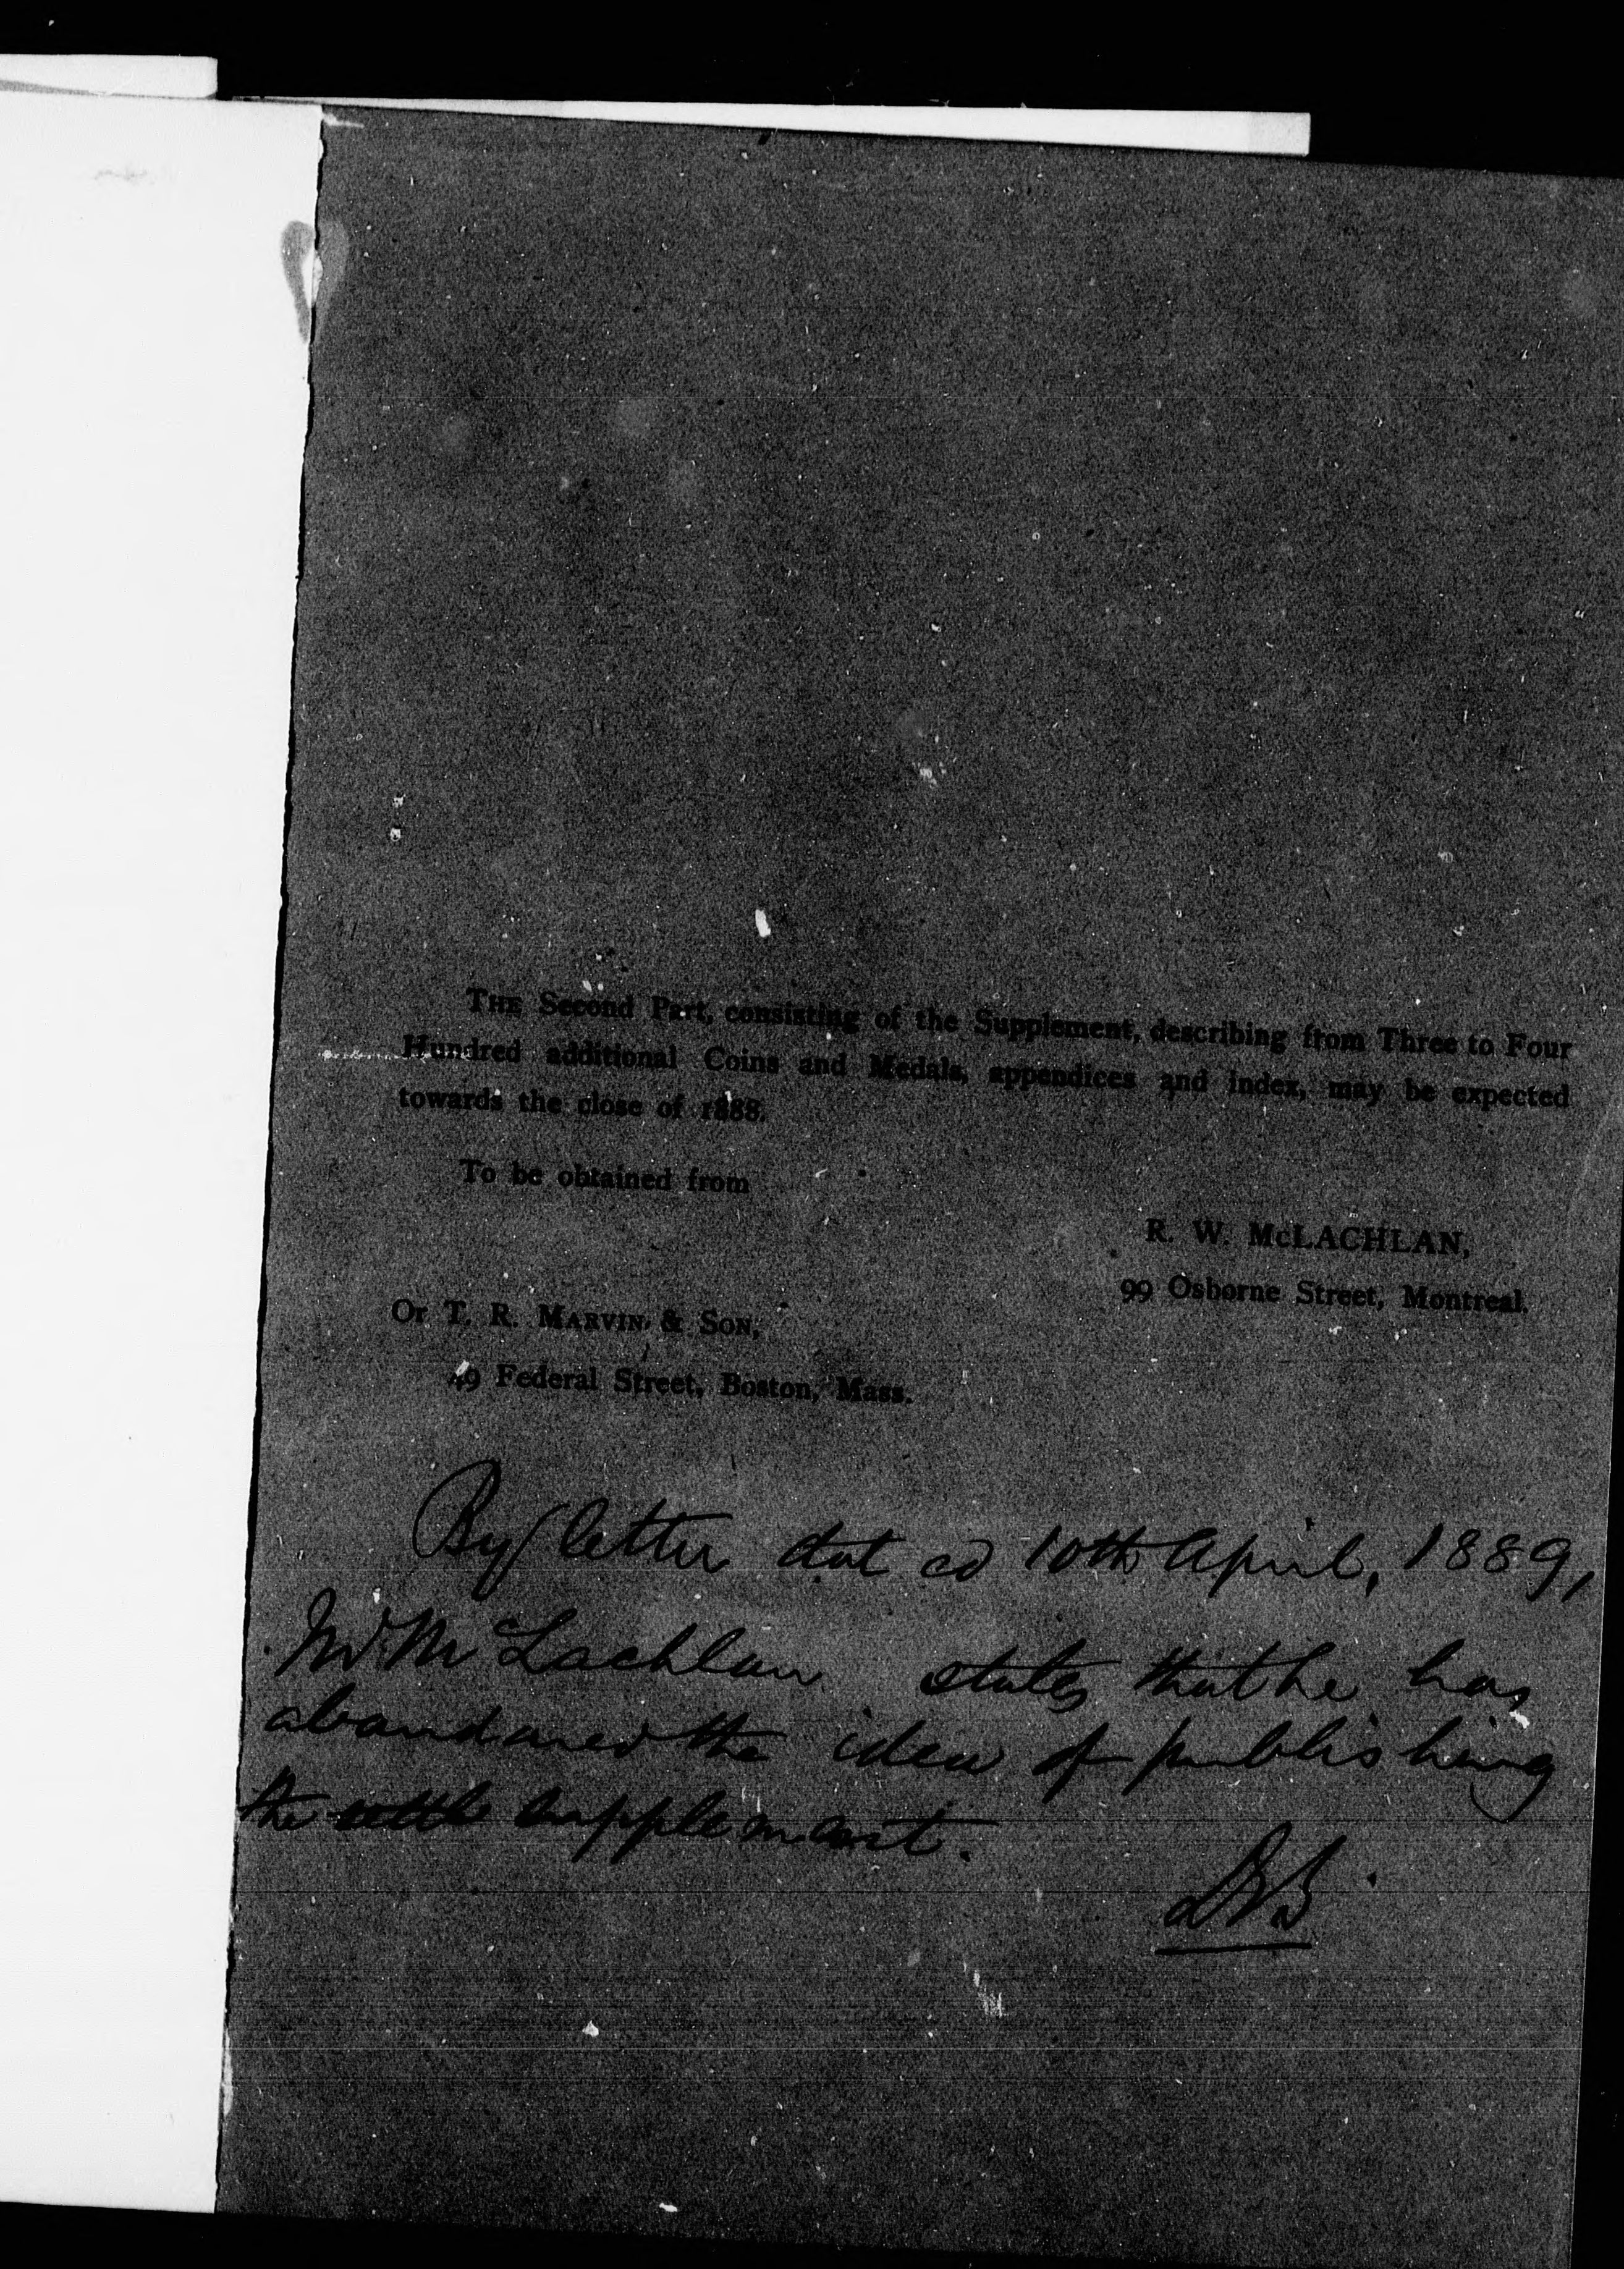 THE Second Part, consisting of the Supplement, describing from Three to Four
Hundred additional Coins and Medals, appendices and index, may be expected
towards the close of 1888.
To be obtained from
R. W. McLACHLAN,
99 Osborne Street, Montreal.
Or T. R. MARVIN & SON,
49 Federal Street, Boston, Mass.
By letter dated 10th April, 1889,
Mr. McLachlan states that he has
abandoned the idea of publishing
the supplement.